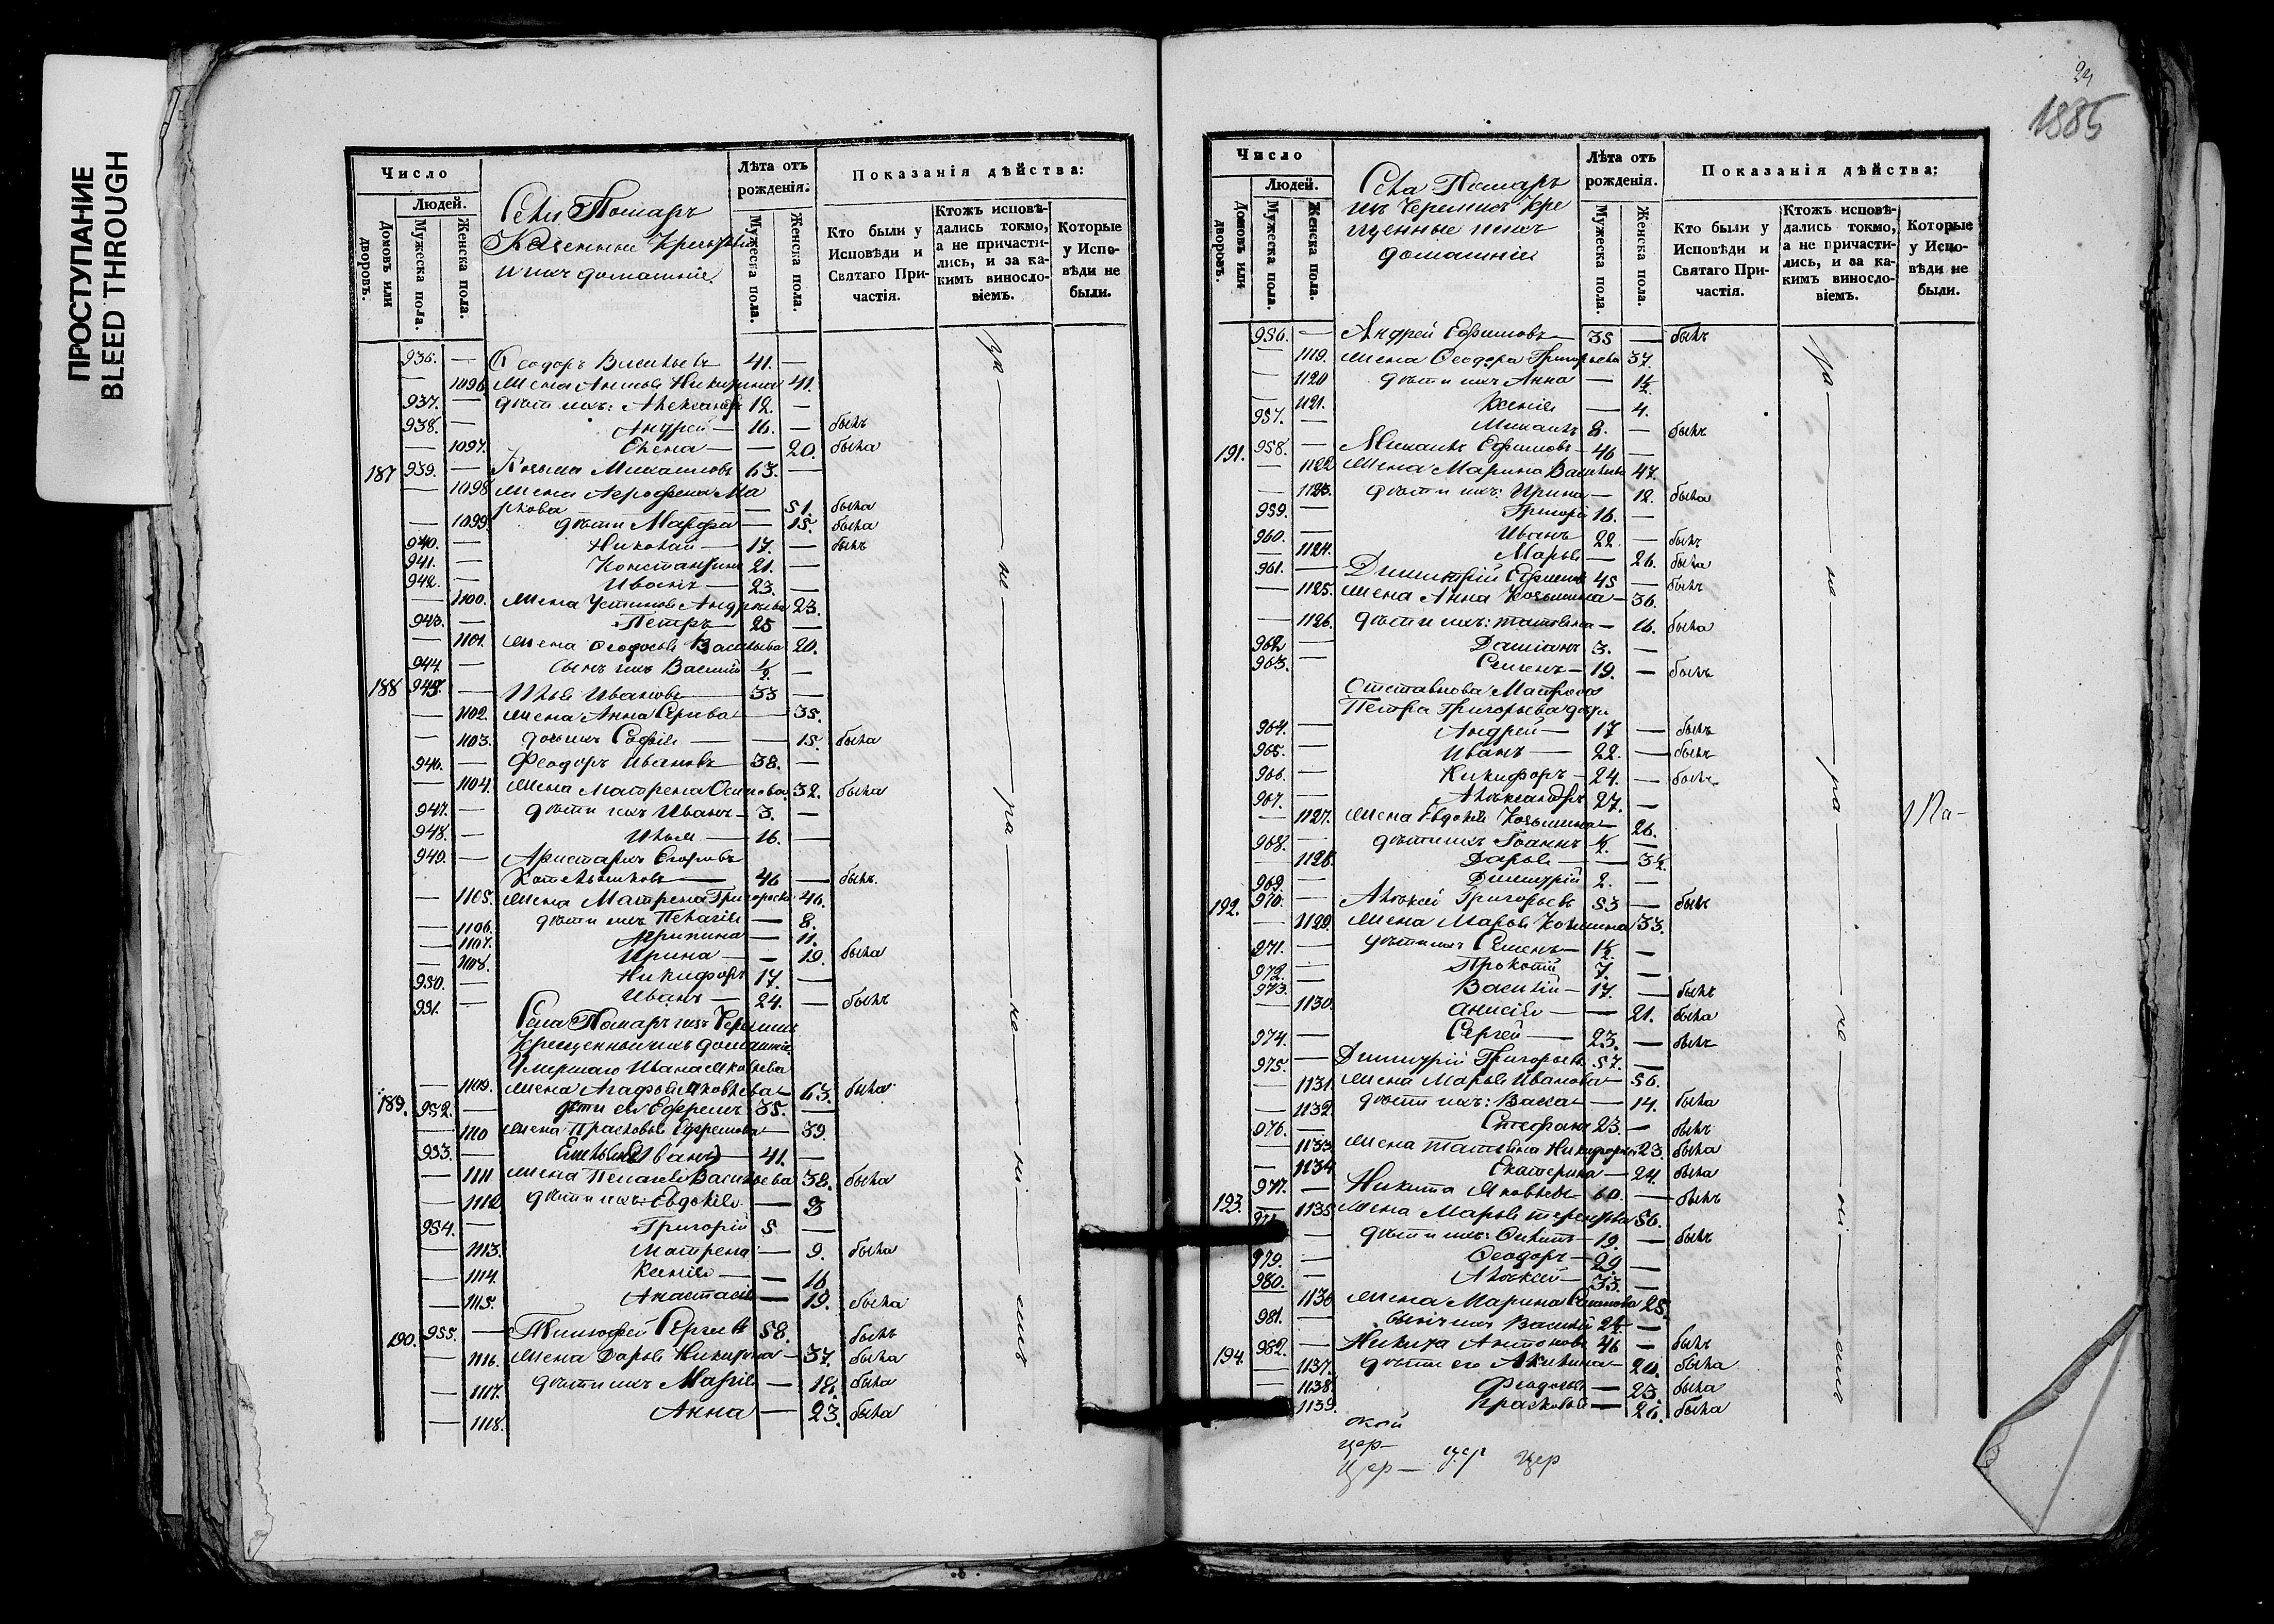 ПРОСТУПАНИЕ
BLEED THROUGH
Число
Людей.
Домовъ или дворовъ.
Мужеска пола.
Женска пола.
Села Помаръ
Казенные Крестьяне
и ихъ домашніе.
Лѣта отъ рожденія.
Мужеска пола.
Женска пола.
Показанія дѣйства:
Кто были у Исповѣди и Святаго Причастія.
Ктожъ исповѣдались токмо, а не причастились, и за какимъ винословіемъ.
Которые у Исповѣди не были.
936. — Ѳеодоръ Васильевъ 41. —
— 1096. Жена Анисья Никитина 41.
937. — дѣти ихъ: Александръ 12. —
938. — Андрей — 16. — былъ
— 1097. Елена — — 20. была
187 939. — Козьма Михаиловъ 63. —
— 1098 Жена Агрофена Ма
ркова — 51. была
— 1099. дѣти Марфа — 15. была
940. — Николай — 17. — былъ
941. — Константинъ 21. —
942. — Иванъ — 23. —
— 1100. Жена Устинья Андреева 23.
943. — Петръ — 25 —
— 1101. Жена Ѳеодосья Васильева 20.
944. — сынъ ихъ Василій 1/2. —
188 945. — Илья Ивановъ — 33 —
— 1102. Жена Анна — 35.
— 1103. дочь ихъ Софья — — 15. была
946. — Феодоръ Ивановъ — 38. —
— 1104. Жена Матрена Осипова 32. была
947. — дѣти ихъ Иванъ — 3. —
948. — Илья — 16. —
949. — Аристархъ Егоровъ
Котельниковъ — 46 — былъ.
— 1105. Жена Матрена Григорьева 46.
— 1106. дѣти ихъ Пелагія — 8.
— 1107. Агрипина — 11.
— 1108. Ирина — — 19. была
950. — Никифоръ 17. —
951. — Иванъ — 24. — былъ
Села Помаръ изъ Черемисъ
Крещенные ихъ домашніе
Умершаго Ивана Яковлева
— 1109. Жена Агафья Яковлева — 63. была
189. 952. — дѣти ея Ефремъ 35. —
— 1110 Жена Прасковья Ефремова — 39.
953. — Емельянъ (Иванъ) — 41. —
— 1111 Жена Пелагея Васильева 38. была
— 1112 дѣти ихъ: Евдокія — — 3
954. — Григорій 5 —
— 1113. Матрена — 9. была
— 1114. Ксенія — — 16
— 1115. Анастасія — 19. была
190. 955. — Тимофей Сергеевъ 58. былъ
— 1116. Жена Дарья Никитина — 37. была
— 1117. дѣти ихъ Марія — 18. была
— 1118. Анна — 23. была
24
1885
Число
Людей.
Домовъ или дворовъ.
Мужеска пола.
Женска пола.
Села Помаръ
изъ Черемисъ Кре
щенные ихъ
домашніе
Лѣта отъ рожденія.
Мужеска пола.
Женска пола.
Показанія дѣйства:
Кто были у Исповѣди и Святаго Причастія.
Ктожъ исповѣдались токмо, а не причастились, и за какимъ винословіемъ.
Которые у Исповѣди не были.
956. — Андрей Ефимовъ — 35 — былъ
— 1119. Жена Ѳеодора Григорьева 37.
— 1120 дѣти ихъ Анна — 1 1/2.
— 1121. Ксенія — 4.
957. — Михаилъ 8. — былъ
191. 958. — Михаилъ Ефимовъ — 46 —
— 1122 Жена Марина Васильева 47.
— 1123. дѣти ихъ: Ирина — 12. была
959. — Григорій 16. —
960. — Иванъ 22. — былъ
— 1124. Марья — 26. была
961. — Димитрій Ефимовъ 45 — былъ
— 1125. Жена Анна Козьмина — 36.
— 1126. дѣти ихъ: Татьяна — 16. была
962 — Даміанъ 3. —
963. — Семенъ — 19. — былъ
Отставнова Матроса
Петра Григорьева дѣти
964. — Андрей — 17 — былъ
965. — Иванъ — 22. — былъ
966. — Никифоръ — 24. — былъ
967. — Александръ 27. —
— 1127. Жена Евдокія Козьмина — 26.
968. — дѣти ихъ Іоаннъ 1/2. —
— 1128. Дарья — — 3 1/2.
969. — Димитрій 2. —
192. 970. — Алексѣй Григорьевъ 53 — былъ
— 1129. Жена Марья Козьмина 33.
971. — дѣти ихъ Семенъ — 1 1/2. —
972. — Прокопій 7. —
973. — Василій — 17. — былъ
— 1130. Анисія — — 21. была
974. — Сергей — 23. — былъ
975. — Димитрій Григорьевъ 57. —
— 1131. Жена Марья Иванова — 56.
— 1132. дѣти ихъ: Васса — 14. была
976. — Стефанъ 23. — былъ
— 1133. Жена Татьяна Никифорова 23. была
— 1134. Екатерина — 24. была
193. 977. — Никита Яковлевъ 60. — былъ
— 1135 Жена Марья Терентьева 56.
— дѣти ихъ: 19. — былъ
979. — Ѳеодоръ — 29. —
980. — Алексѣй — 33. —
1136 Жена Марина 25.
981. — сынъ ихъ Василій 2 1/2 —
194. 982. — Никита Антоновъ 46 — былъ
— 1137. дѣти его Акилина — 20. была
— 1138. Феодосья — 23. была
1139. Прасковья — 26. была
цер—
Цер— цер цер